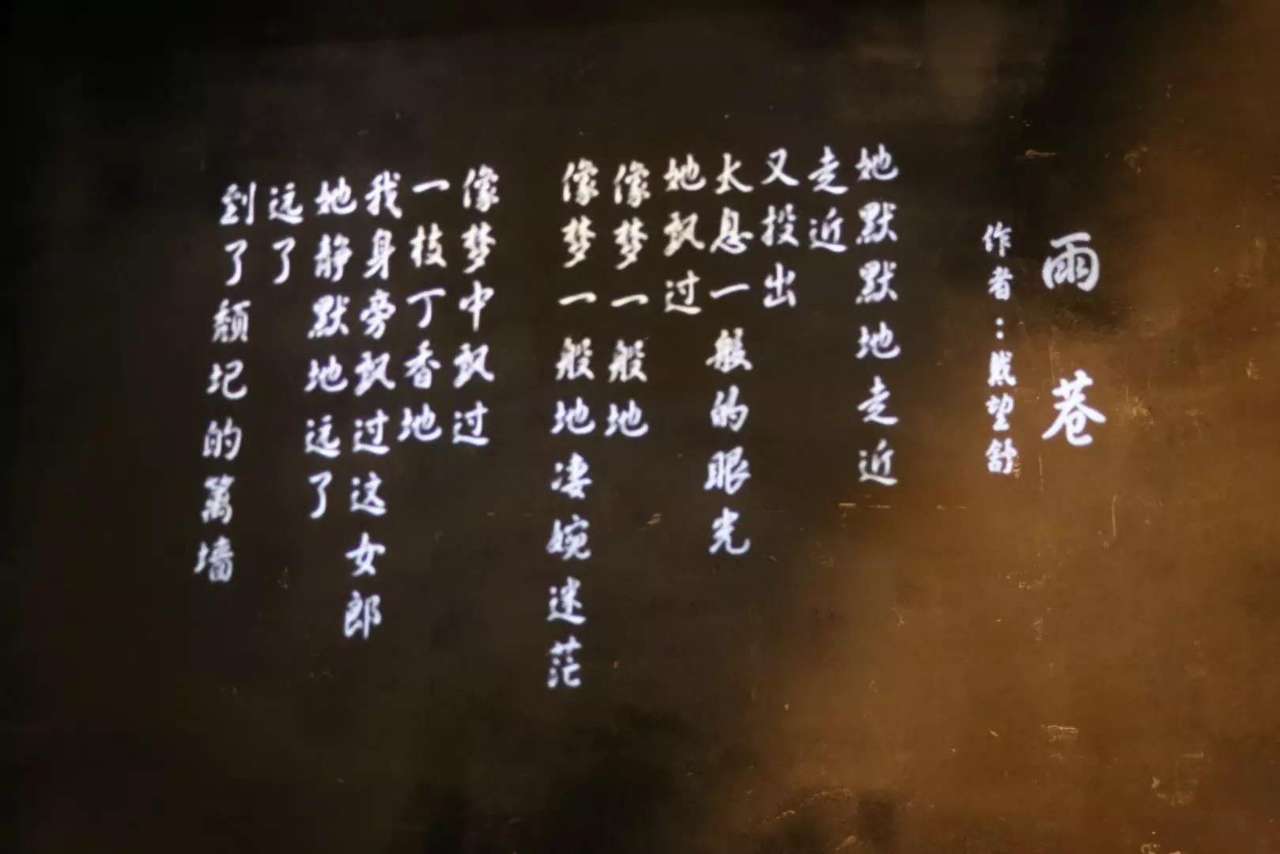 雨巷
作者:戴望舒
她默默地走近
走近
又投出
太息一般的眼光
她飘过
像梦一般地
像梦一般地凄婉迷茫
像梦中飘过
一枝丁香地
我身旁飘过这女郎
她静默地远了
远了
到了颓圮的篱墙